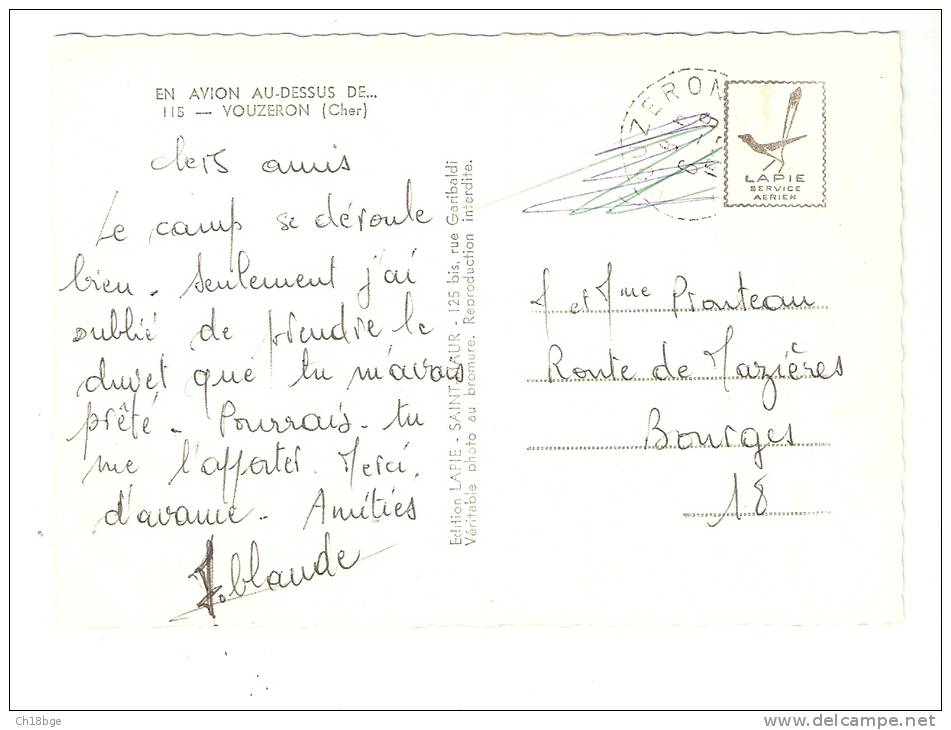 EN AVION AU-DESSUS DE...
115 — VOUZERON (Cher)
chers amis
Le camp se déroule
bien. Seulement j'ai
oublié de prendre le
duvet que tu m'avais
prêté. Pourrais-tu
me l'apporter. Merci
d'avance. Amitiés
Edition LAPIE - SAINT-MAUR - 125 bis, rue Garibaldi
Véritable photo au bromure. Reproduction interdite.
LAPIE
SERVICE
AERIEN
M et Mme Pionteau
Route de Mazières
Bourges
18
Ch18bge
www.delcampe.net